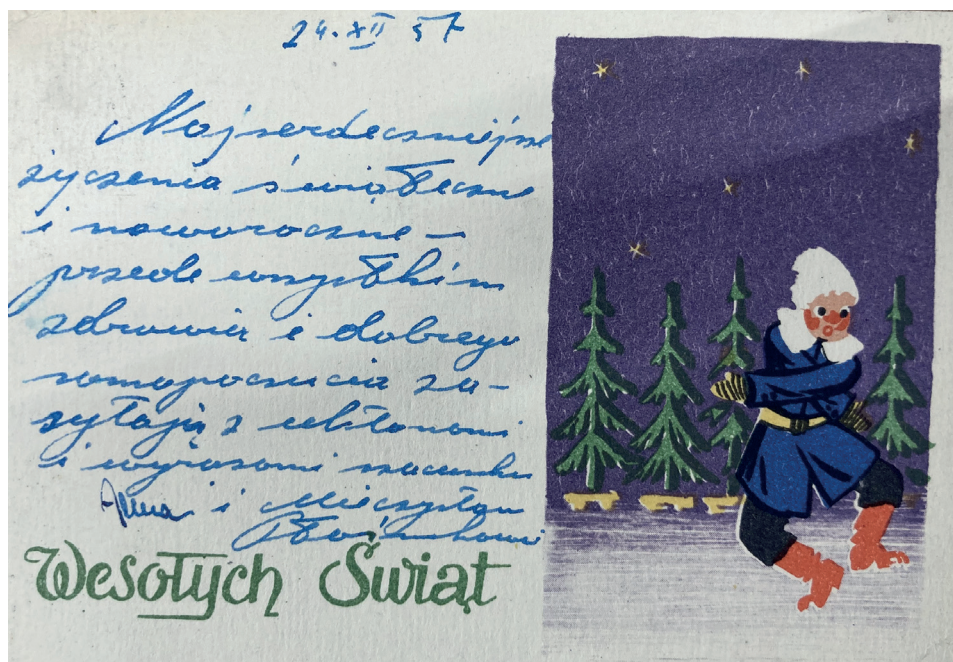 24.XII 57
Najserdeczniejsze
życzenia świąteczne
i noworoczne –
przede wszystkim
zdrowia i dobrego
samopoczucia za-
syłają z ukłonami
i wyrazami szacunku
Anna i Mieczysław
Wesołych Świąt